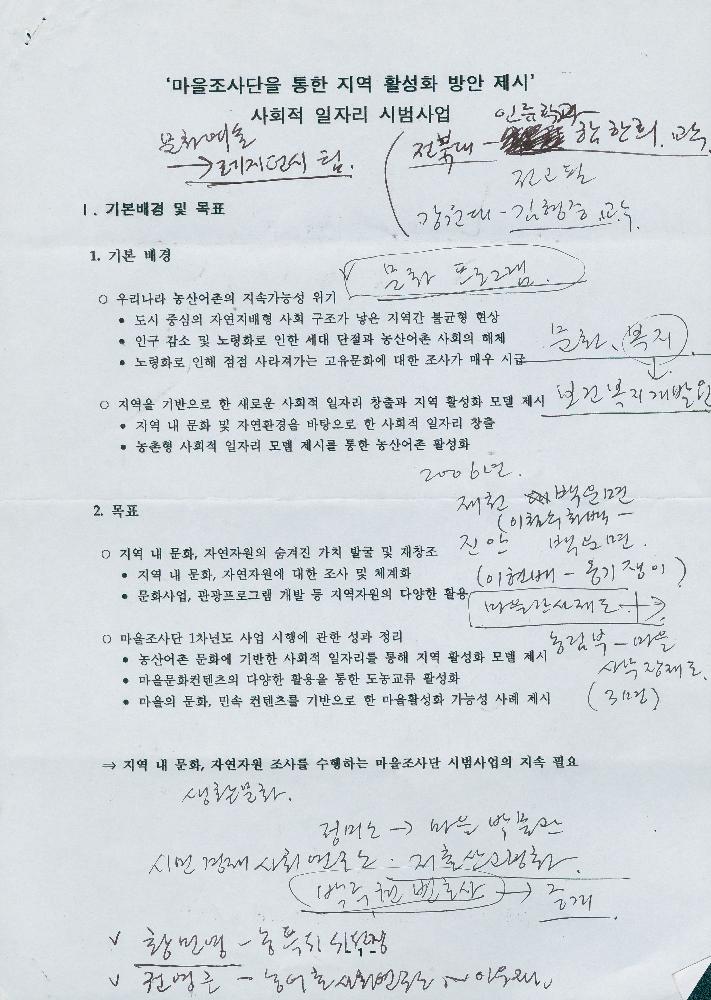 '마을조사단을 통한 지역 활성화 방안 제시'
사회적 일자리 시범사업
문화예술
인류학과
→레지던시 팀.
전북대 - 함한희. 교수
전고필
강원대 - 김형준 교수.
I. 기본배경 및 목표
1. 기본 배경
문화 프로그램.
○ 우리나라 농산어촌의 지속가능성 위기
• 도시 중심의 자연지배형 사회 구조가 낳은 지역간 불균형 현상
• 인구 감소 및 노령화로 인한 세대 단절과 농산어촌 사회의 해체
문화, 복지.
• 노령화로 인해 점점 사라져가는 고유문화에 대한 조사가 매우 시급
○ 지역을 기반으로 한 새로운 사회적 일자리 창출과 지역 활성화 모델 제시
보건복지개발원
• 지역 내 문화 및 자연환경을 바탕으로 한 사회적 일자리 창출
• 농촌형 사회적 일자리 모델 제시를 통한 농산어촌 활성화
2006년.
제천 백운면
2. 목표
진안 백운면.
○ 지역 내 문화, 자연자원의 숨겨진 가치 발굴 및 재창조
• 지역 내 문화, 자연자원에 대한 조사 및 체계화
(이현배 - 옹기쟁이)
• 문화사업, 관광프로그램 개발 등 지역자원의 다양한 활용
마을간사제도 →
○ 마을조사단 1차년도 사업 시행에 관한 성과 정리
농림부 - 마을
• 농산어촌 문화에 기반한 사회적 일자리를 통해 지역 활성화 모델 제시
사무장제도.
• 마을문화컨텐츠의 다양한 활용을 통한 도농교류 활성화
• 마을의 문화, 민속 컨텐츠를 기반으로 한 마을활성화 가능성 사례 제시
(3명)
⇒ 지역 내 문화, 자연자원 조사를 수행하는 마을조사단 시범사업의 지속 필요
생활문화.
정미소 → 마을 박물관
시민경제사회연구소 - 저출산고령화.
변호사 → 중개.
√ 황민영 - 농특위 위원장
√ 권영근 - 농어촌사회연구소